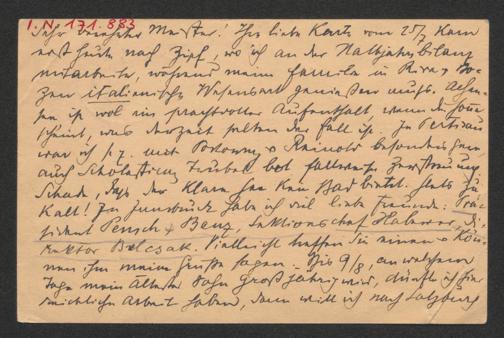 I. N. 171.883
Sehr verehrter Meister! Ihre liebe Karte vom 25/7 kam
erst heute nach Zipf, wo ich an der Halbjahrbilanz
mitarbeite, während meine Familie in Riva & Bo-
zen italienische Wesensart genießen muß.
ist wol ein prachtvoller Aufenthalt, wenn die Sonne
scheint, was derzeit selten der Fall ist. In Pertisau
war ich s. Z. mit & Reinold besonders gern
auch Scholastica bot fallweise Zerstreuung
Schade, daß der klare See kein Bad bietet. Stets zu
kalt! In Innsbruck habe ich viel liebe Freunde: Prä-
sident Pensch & Benz, Sektionschef Haberer, Di-
rektor Belcsak. Vielleicht treffen Sie einen & kön-
nen ihm meine Grüße sagen. Bis 9/8, an welchem
Tage mein ältester Sohn großjährig wird, dürfte ich hier
reichliche Arbeit haben, dann will ich nach Salzburg